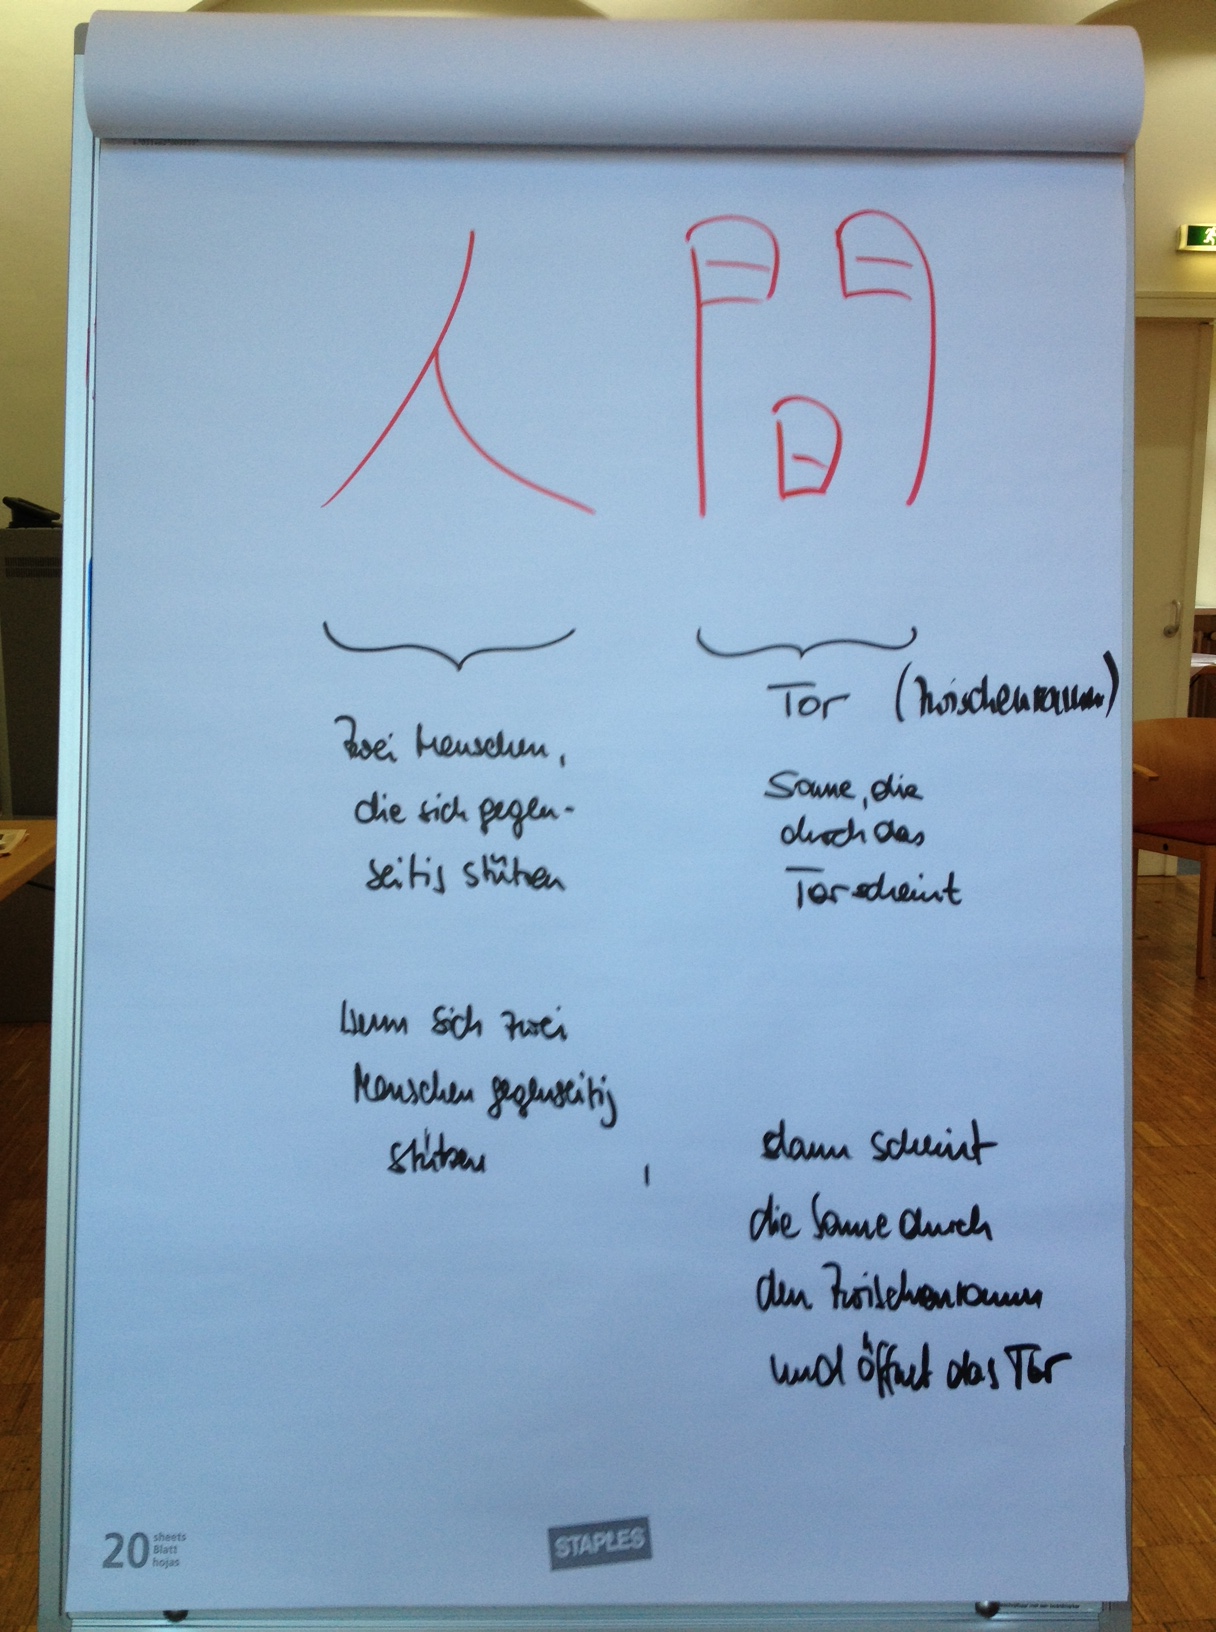 人間
Zwei Menschen,
die sich gegen-
seitig stützen
Tor (Zwischenraum)
Sonne, die
durch das
Tor scheint
Wenn sich zwei
Menschen gegenseitig
stützen,
dann scheint
die Sonne durch
den Zwischenraum
und öffnet das Tor
20 sheets
Blatt
hojas
STAPLES